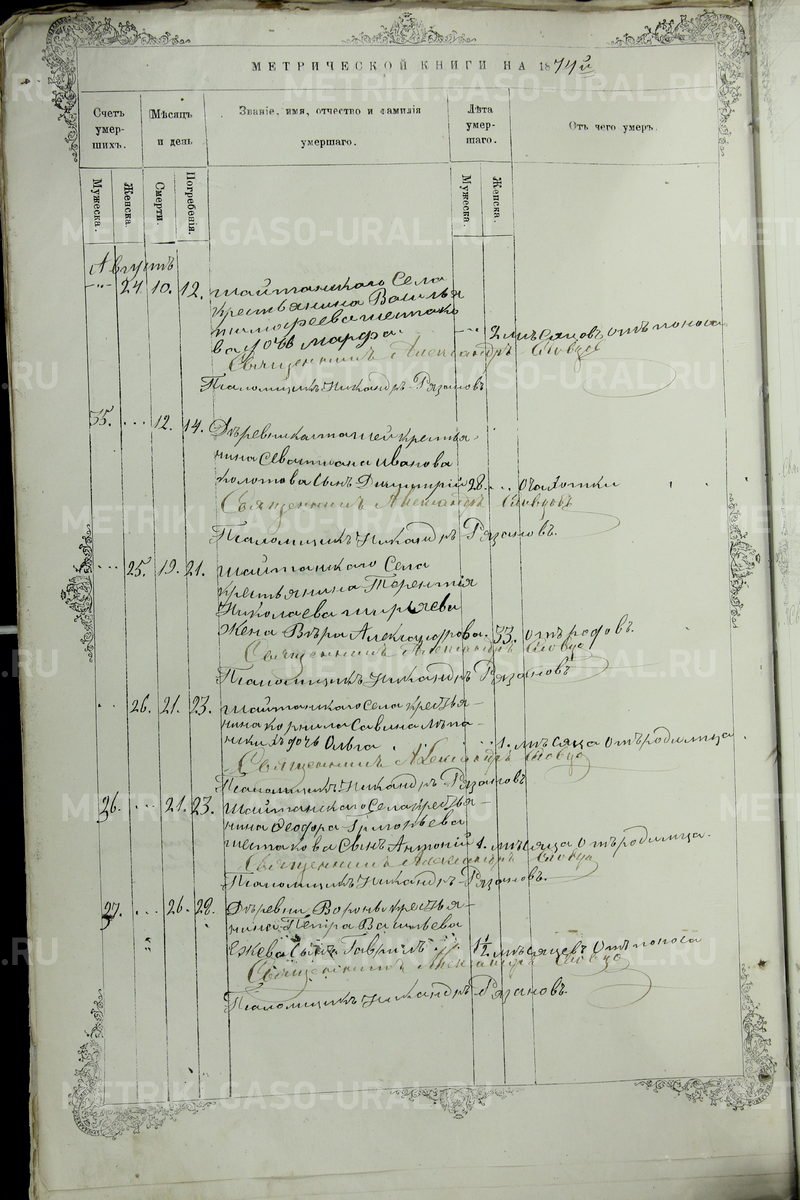 МЕТРИЧЕСКОЙ КНИГИ НА 1874й
Счетъ умер-шихъ.
Мѣсяцъ и день
Званіе, имя, отчество и фамилія умершаго.
Лѣта умер-шаго.
Отъ чего умеръ.
Мужеска.
Женска.
Смерти.
Погребенія.
Мужеска.
Женска.
Августъ
-"- 24. 10. 12. Шайтанскаго Села
крестьянина Василья
Тимофеева Шестако
ва дочь Марфа. -"- 2 мѣсяцовъ отъ поноса
Священникъ Александръ Словцовъ
Псаломщикъ Никандръ Рязановъ
35. ... 12. 14. Деревни крестья-
нина Севастиана Иванова
сынъ Димитрій 28. .. Отъ чахотки
Священникъ Александръ Словцовъ
Псаломщикъ Никандръ Рязановъ.
... 25. 19. 21. Шайтанскаго Села
крестьянина Терентія
Николаева Ширяева
Жена Вѣра Александрова. 33. отъ родовъ.
Священникъ Александръ Словцо
Псаломщикъ Никандръ Рязановъ
.. 26. 21. 23. Шайтанскаго Села крестья-
нина Корнила Савина
дочь Ольга .. 1. мѣсяца отъ родимца
Священникъ Александръ Словцо
Псаломщикъ Никандръ Рязановъ
36. ... 21. 23. Шайтанскаго Села крестья-
нина Феодора Григорьева
Шестакова Сынъ Антоній 1. мѣсяца Отъ родимца.
Священникъ Александръ Словцо
Псаломщикъ Никандръ Рязановъ.
37. ... 26. 28. Деревни крестья-
нина Петра Васильева
Ежева Сынъ Гаврилъ 1½ мѣсяцевъ Отъ поноса
Священникъ Александръ Словцо
Псаломщикъ Никандръ Рязановъ.
METRIKI.GASO-URAL.RU